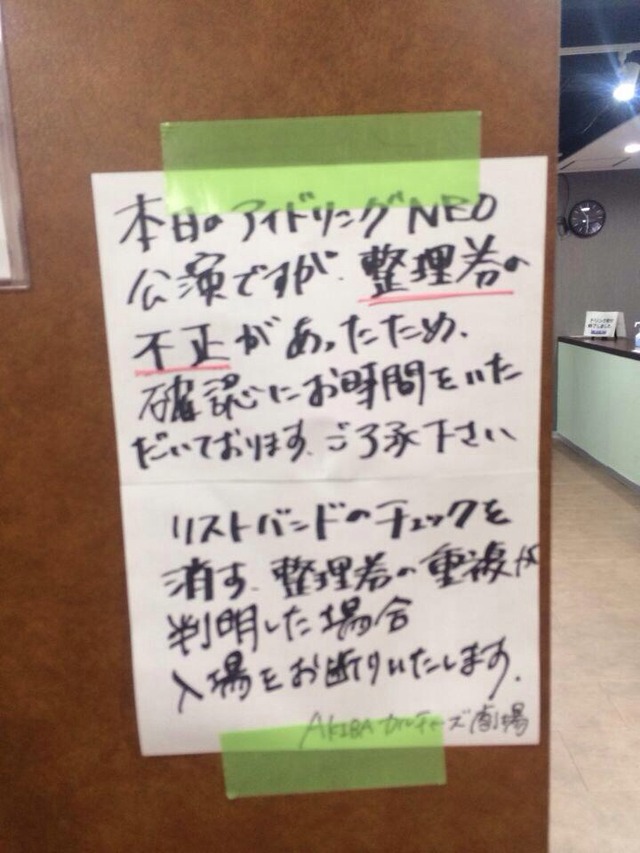 本日のアイドリングNEO
公演ですが、整理券の
不正があったため、
確認にお時間をいた
だいております、ご了承下さい
リストバンドのチェックを
消す、整理券の重複が
判明した場合
入場をお断りいたします.
AKIBAカルチャーズ劇場